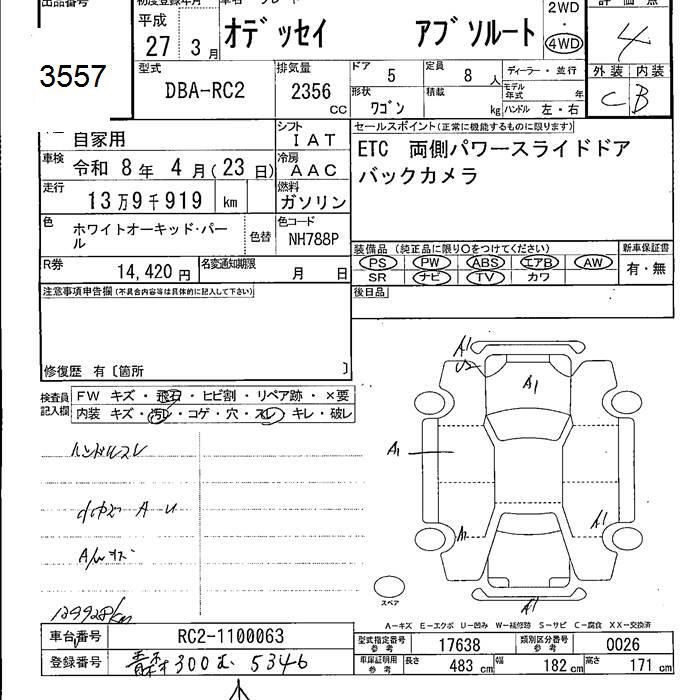 出品番号 初度登録年月 車名 グレード 評価点
3557
平成 27 3月 オデッセイ アブソルート 2WD・4WD 4
型式 DBA-RC2 排気量 2356 CC
ドア 5 定員 8 人 ディーラー・並行 外装 C 内装 B
形状 ワゴン 積載 kg モデル年式 年 ハンドル 左・右
自家用 シフト IAT
車検 令和 8年 4月(23日) 冷房 AAC
走行 13万9千919 km 燃料 ガソリン
色 ホワイトオーキッド・パール 色替 色コード NH788P
R券 14,420円 名変通知期限 月 日
セールスポイント(正常に機能するものに限ります)
ETC 両側パワースライドドア
バックカメラ
装備品 (純正品に限り○をつけてください) 新車保証書
PS PW ABS エアB AW 有・無
SR ナビ TV カワ
後日品
注意事項申告欄(不具合内容等は具体的に記入して下さい)
修復歴 有〔箇所 〕
検査員記入欄 FW キズ・飛石・ヒビ割・リペア跡・×要
内装 キズ・汚レ・コゲ・穴・スレ・キレ・破レ
ハンドルスレ
A U
A/Wキズ
139928km
A1
U2
A1
A1
A1
A1
A1
スペア
A−キズ E−エクボ U−凹み W−補修跡 S−サビ C−腐食 XX−交換済
車台番号 RC2-1100063
登録番号 青森 300 む 5346
型式指定番号 参考 17638 類別区分番号 参考 0026
車庫証明用 参考 長さ 483 cm 幅 182 cm 高さ 171 cm